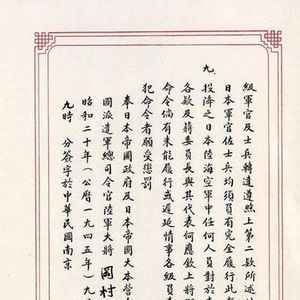 級軍官及士兵轉遵遵照上第二款所述
日本軍官佐士兵均須負有完全履行此
九、
投降之日本陸海空軍中任何人員對於
各款及蔣委員長與其代表何應欽上將
命令倘有未能履行或遲延情事各級負
犯命令者願受懲罰
奉日本帝國政府及日本帝國大本營
國派遣軍總司令官陸軍大將 岡村
昭和二十年（公曆一九四五年）九
九時 分簽字於中華民國南京